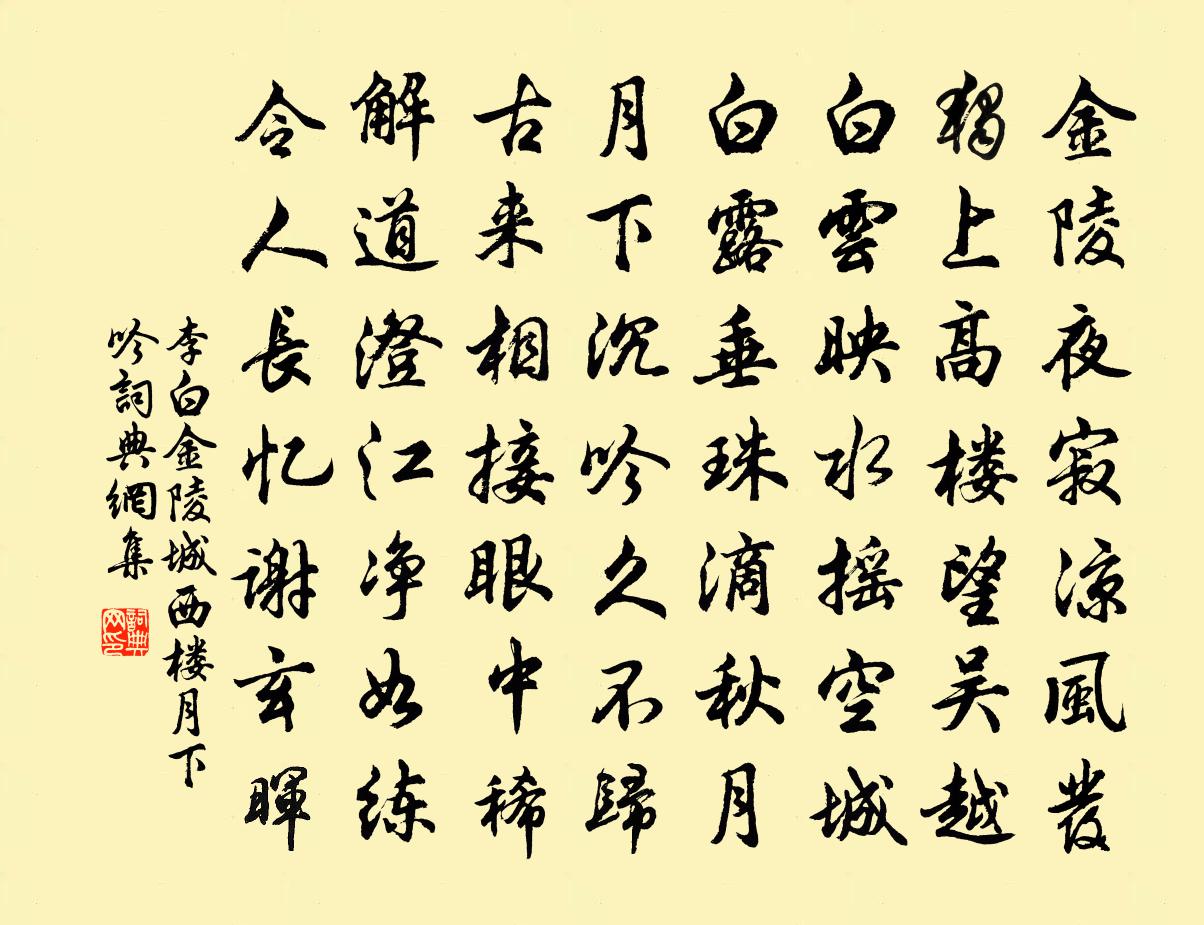 金陵夜寂涼風發
獨上高楼望吴越
白雲映水摇空城
白露垂珠滴秋月
月下沉吟久不歸
古来相接眼中稀
解道澄江净如练
令人長忆谢玄暉
李白金陵城西楼月下
吟詞典網集
詞典网印